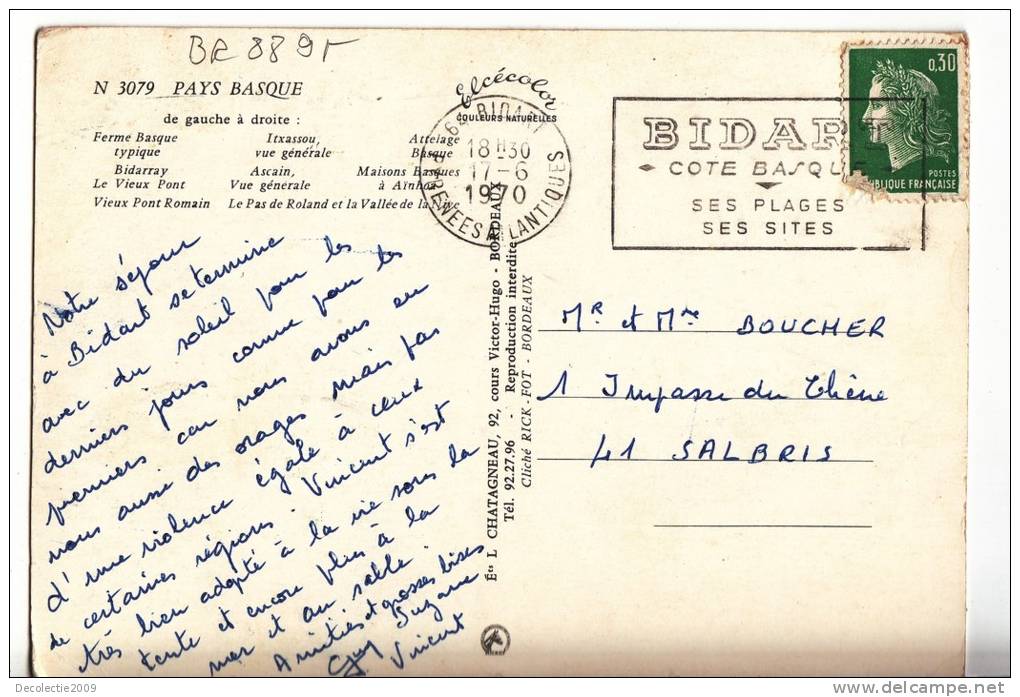 BR 8895
N 3079 PAYS BASQUE
de gauche à droite :
Ferme Basque typique
Itxassou, vue générale
Attelage Basque
Bidarray Le Vieux Pont
Ascain, Vue générale
Maisons Basques à Aïnhoa
Vieux Pont Romain
Le Pas de Roland et la Vallée de la Nive
Elcécolor
COULEURS NATURELLES
64 BIDART
18H30
17-6
1970
PYRENEES ATLANTIQUES
BIDART
COTE BASQUE
SES PLAGES
SES SITES
0,30
POSTES
RÉPUBLIQUE FRANÇAISE
Notre séjour
à Bidart se termine
avec du soleil pour les
derniers jours comme pour les
premiers car nous avons eu
nous aussi des orages mais pas
d'une violence égale à ceux
de certaines régions. Vincent s'est
très bien adapté à la vie sous la
tente et encore plus à la
mer et au sable.
Amitiés et grosses bises
Guy Suzanne
Vincent
Éts L CHATAGNEAU, 92, cours Victor-Hugo - BORDEAUX
Tél. 92.27.96 - Reproduction interdite
Cliché RICK-FOT - BORDEAUX
Mr et Mme BOUCHER
1 Impasse du Chêne
41 SALBRIS
Decolectie2009
www.delcampe.net